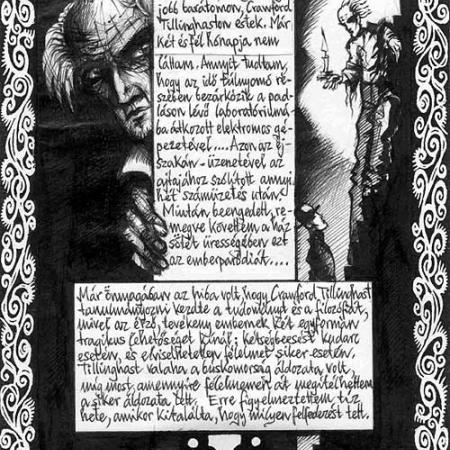 jobb barátomon, Crawford
Tillinghaston estek. Már
két és fél hónapja nem
láttam. Annyit tudtam,
hogy az idő túlnyomó ré-
szében bezárkózik a pad-
láson lévő laboratóriumá-
ba átkozott elektromos gé-
pezetével.... Azon az éj-
szakán - üzenetével az
ajtajához szólított annyi
hét száműzetés után.
Miután beengedett, re-
megve követtem a ház
sötét ürességében ezt
az emberparódiát....
Már önmagában az hiba volt, hogy Crawford Tillinghast
tanulmányozni kezdte a tudományt és a filozófiát,
mivel az érző, tevékeny embernek két egyformán
tragikus lehetőséget kínál: kétségbeesést kudarc
esetén, és elviselhetetlen félelmet siker esetén.
Tillinghast valaha a búskomorság áldozata volt,
míg most, amennyire félelmemért át megítélhettem
a siker áldozata lett. Erre figyelmeztettem tíz
hete, amikor kitalálta, hogy milyen felfedezést tett.